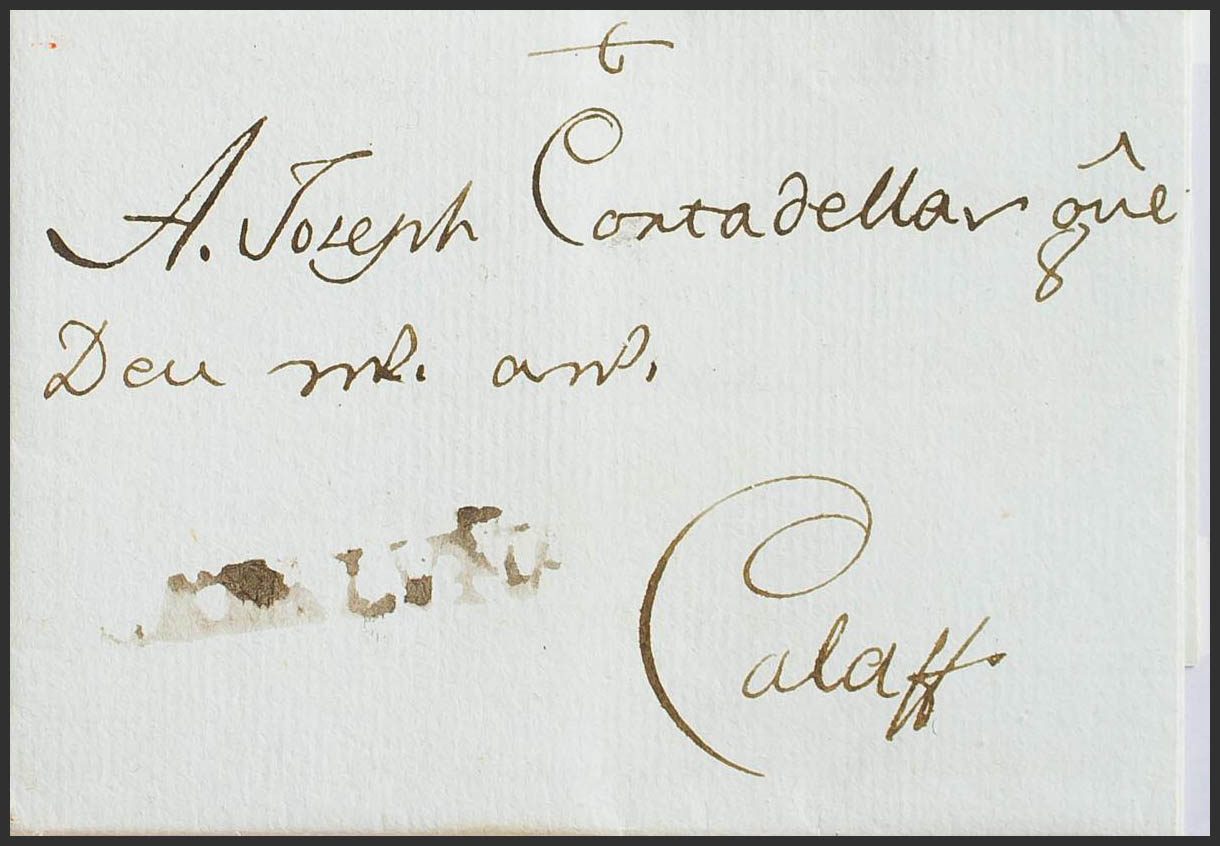 A. Joseph Cortadellas que
Deu m.ª an.ˢ.
Calaff